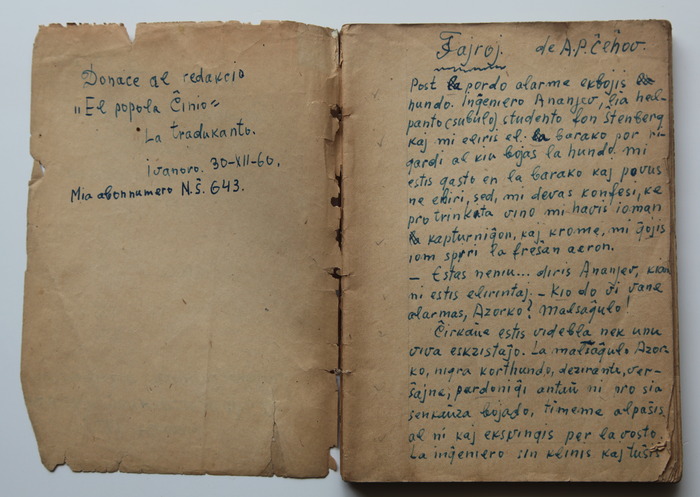 Donace al redakcio
„El popola Ĉinio"
La tradukanto.
Ivanovo. 30-XII-60.
Mia abonnumero N.Ŝ. 643.
Fajroj. de A.P. Ĉeĥov.
Post la pordo alarme ekbojis
hundo. Inĝeniero Ananjev, lia hel-
panto (subulo) studento fon Ŝtenberg
kaj mi eliris el la barako por ri-
gardi al kiu bojas la hundo. mi
estis gasto en la barako kaj povus
ne eliri, sed, mi devas konfesi, ke
pro trinkata vino mi havis ioman
kapturniĝon, kaj krome, mi ĝojis
iom spiri la freŝan aeron.
— Estas neniu... diris Ananjev, kiam
ni estis elirintaj. — Kio do vi vane
alarmas, Azorko? Malsaĝulo!
Ĉirkaŭe estis videbla nek unu
viva ekzistaĵo. La malsaĝulo Azor-
ko, nigra korthundo, dezirante, ver-
ŝajne, pardoniĝi antaŭ ni pro sia
senkaŭza bojado, timeme alpaŝis
al ni kaj eksvingis per la vosto.
La inĝeniero sin klinis kaj tuŝis